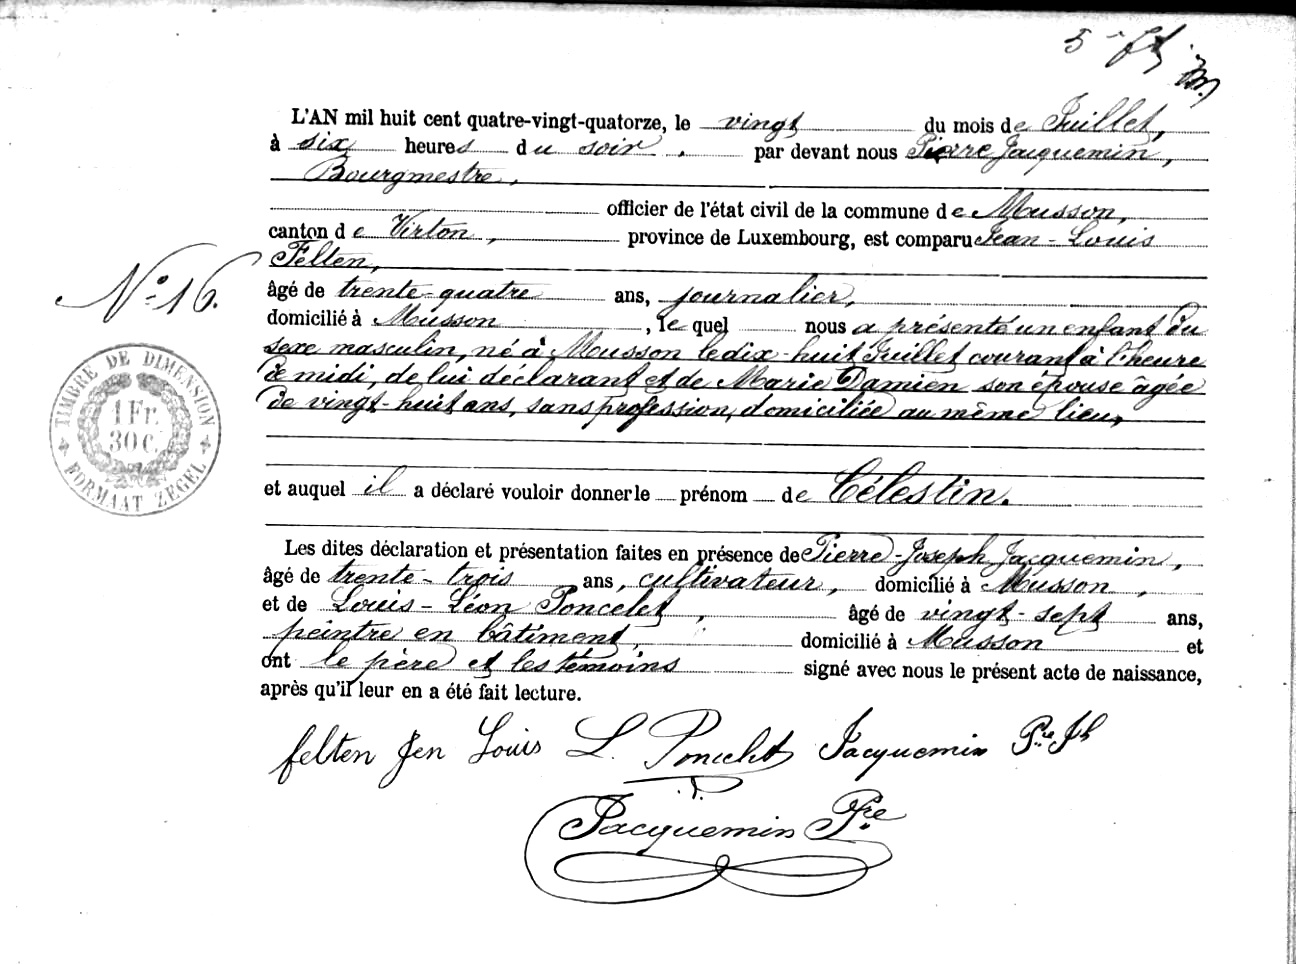 5
L'AN mil huit cent quatre-vingt-quatorze, le vingt du mois de Juillet,
à six heures du soir, par devant nous Pierre Jacquemin,
Bourgmestre,
officier de l'état civil de la commune de Musson,
canton de Virton, province de Luxembourg, est comparu Jean-Louis
Felten,
N° 16.
âgé de trente-quatre ans, journalier,
domicilié à Musson, le quel nous a présenté un enfant du
sexe masculin, né à Musson le dix-huit Juillet courant à l'heure
de midi, de lui déclarant et de Marie Damien son épouse âgée
de vingt-huit ans, sans profession, domiciliée au même lieu,
TIMBRE DE DIMENSION
1 Fr.
30 C.
FORMAAT ZEGEL
et auquel il a déclaré vouloir donner le prénom de Célestin.
Les dites déclaration et présentation faites en présence de Pierre-Joseph Jacquemin,
âgé de trente-trois ans, cultivateur, domicilié à Musson,
et de Louis-Léon Poncelet, âgé de vingt-sept ans,
peintre en bâtiment, domicilié à Musson et
ont le père et les témoins signé avec nous le présent acte de naissance,
après qu'il leur en a été fait lecture.
felten Jen Louis L. Poncelet Jacquemin Pre Jh
Jacquemin Pre